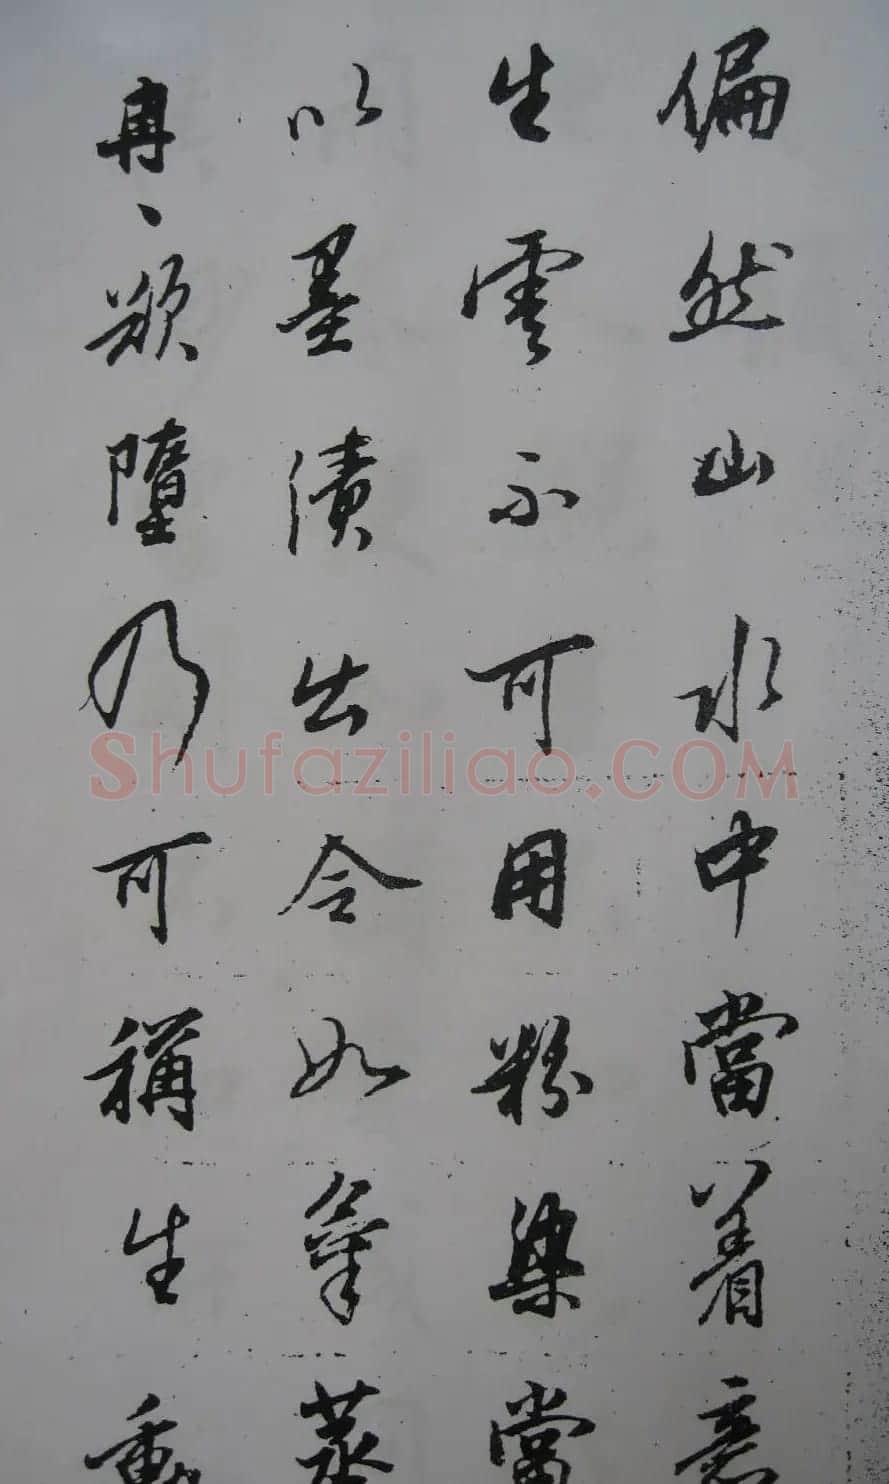 偏然山水中當着意
生雲不可用粉染當
以墨漬出令如氣蒸
冉、欲墮乃可稱生動
Shufaziliao.COM